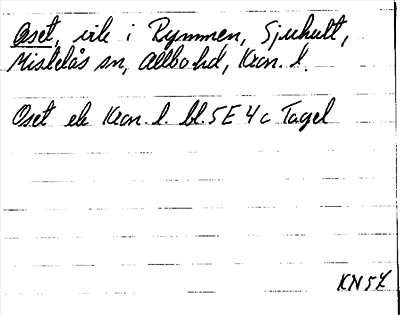 Oset, vik i Rymmen, Sjuhult,
Mistelås sn, Allbo hd, Kron. l.
Oset ek Kron. l. bl. 5E 4c Tagel
KN57